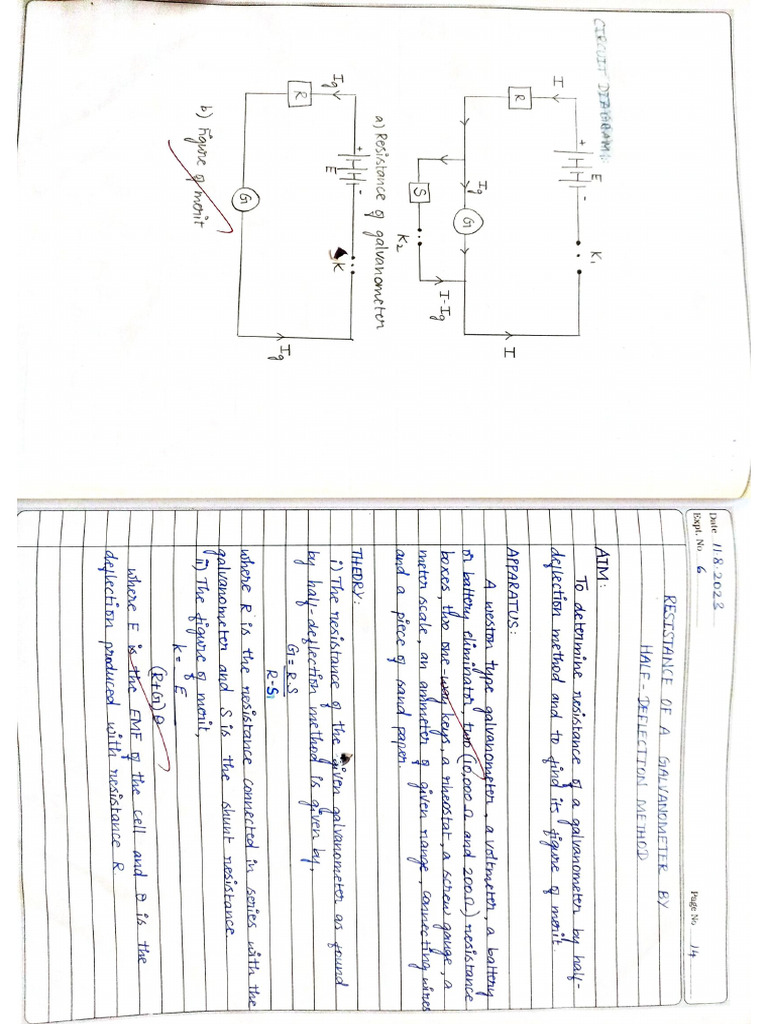 CIRCUIT DIAGRAM:
I
R
+
E
-
K1
Ig
G
S
K2
I-Ig
I
a) Resistance of galvanometer
Ig
R
+
E
-
K
G
Ig
b) Figure of merit
Date 11.8.2023
Expt. No. 6
Page No. 14
RESISTANCE OF A GALVANOMETER BY
HALF-DEFLECTION METHOD
AIM:
To determine resistance of a galvanometer by half-
deflection method and to find its figure of merit.
APPARATUS:
A weston type galvanometer, a voltmeter, a battery
or battery eliminator, two (10,000 Ω and 200Ω) resistance
boxes, two one-way keys, a rheostat, a screw gauge, a
meter scale, an ammeter of given range, connecting wires
and a piece of sand paper.
THEORY:
i) The resistance of the given galvanometer as found
by half-deflection method is given by,
G = R.S
R-S
where R is the resistance connected in series with the
galvanometer and S is the shunt resistance.
ii) The figure of merit,
k = E
(R+G) θ
where E is the EMF of the cell and θ is the
deflection produced with resistance R.